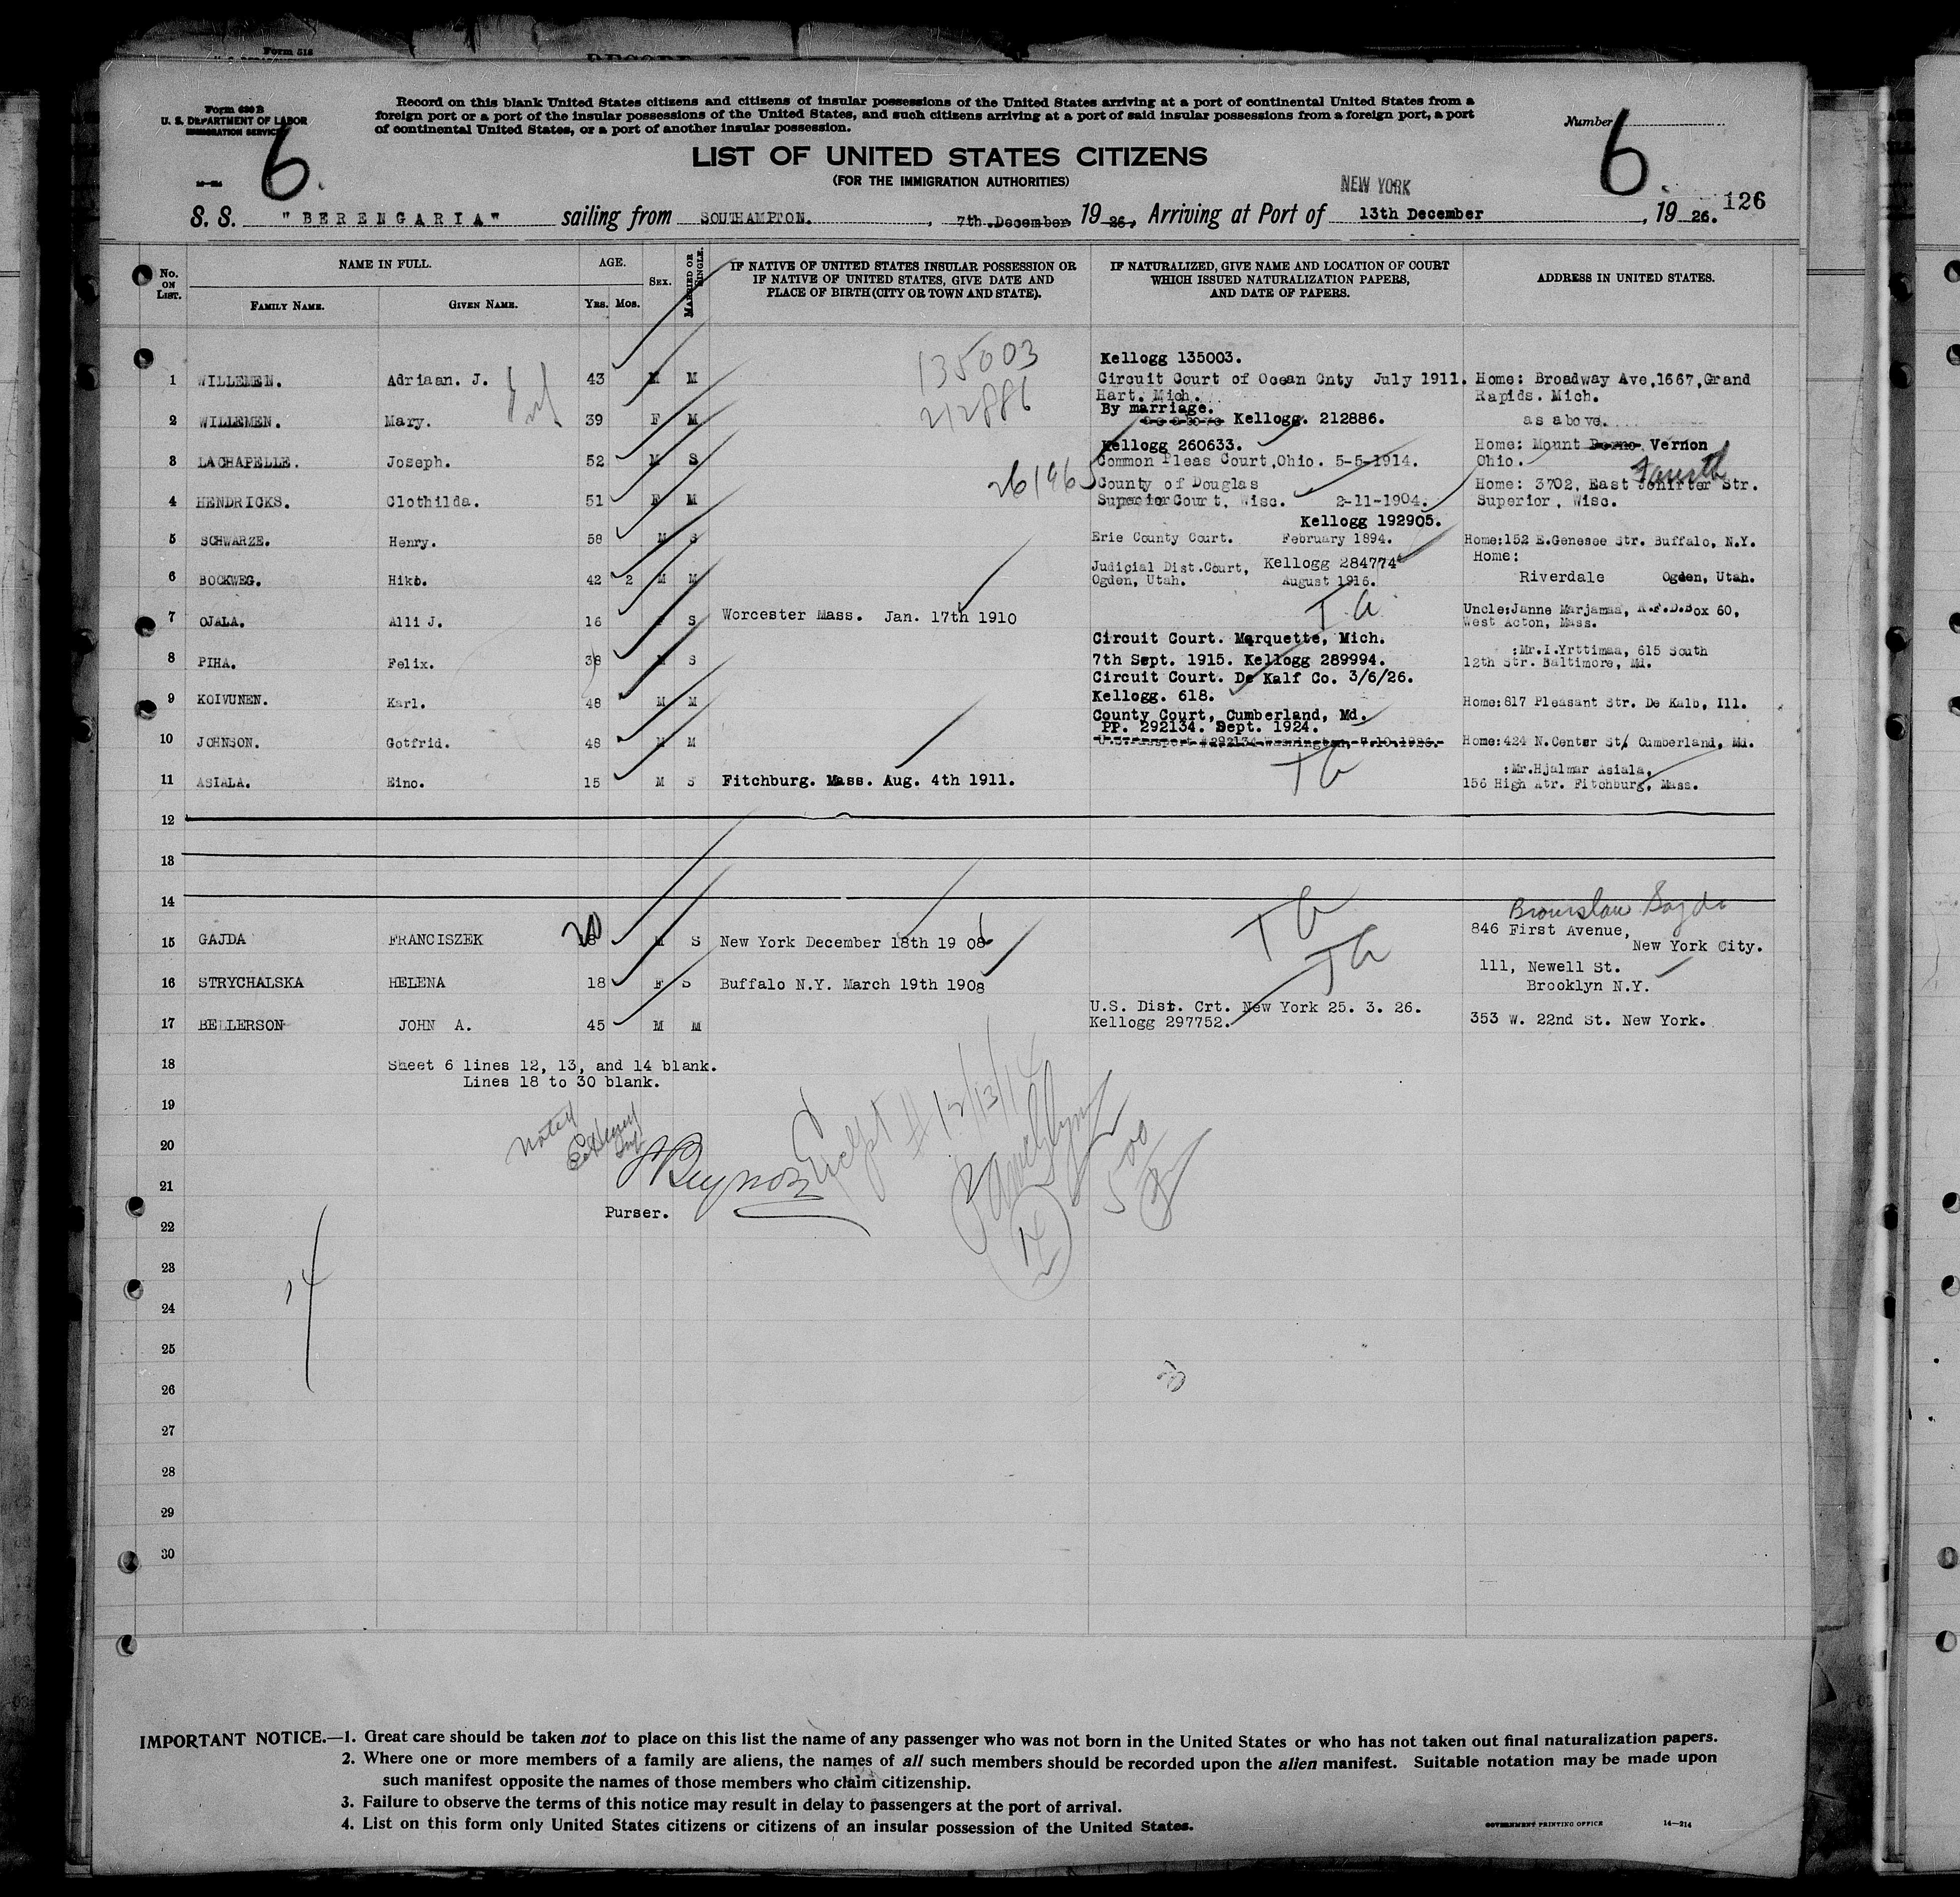 Form 630 B
U. S. DEPARTMENT OF LABOR
IMMIGRATION SERVICE
Record on this blank United States citizens and citizens of insular possessions of the United States arriving at a port of continental United States from a
foreign port or a port of the insular possessions of the United States, and such citizens arriving at a port of said insular possessions from a foreign port, a port
of continental United States, or a port of another insular possession.
Number
6
6
LIST OF UNITED STATES CITIZENS
(FOR THE IMMIGRATION AUTHORITIES)
NEW YORK
126
S. S. "BERENGARIA" sailing from SOUTHAMPTON. , 7th.December, 19 26, Arriving at Port of 13th December , 19 26.
No. ON LIST. NAME IN FULL. AGE. SEX. MARRIED OR SINGLE. IF NATIVE OF UNITED STATES INSULAR POSSESSION OR IF NATIVE OF UNITED STATES, GIVE DATE AND PLACE OF BIRTH (CITY OR TOWN AND STATE). IF NATURALIZED, GIVE NAME AND LOCATION OF COURT WHICH ISSUED NATURALIZATION PAPERS, AND DATE OF PAPERS. ADDRESS IN UNITED STATES.
FAMILY NAME. GIVEN NAME. YRS. MOS.
135003 Kellogg 135003.
1 WILLEMEN. Adriaan. J. 43 M M Circuit Court of Ocean Cnty July 1911. Home: Broadway Ave,1667,Grand
212886 Hart. Mich. Rapids. Mich.
By marriage.
2 WILLEMEN. Mary. 39 F M Kellogg. 212886. as above.
Kellogg 260633. Home: Mount Vernon
3 LACHAPELLE. Joseph. 52 M S Common Pleas Court,Ohio. 5-5-1914. Ohio.
26196 County of Douglas Home: 3702, East Str.
4 HENDRICKS. Clothilda. 51 F M Superior Court, Wisc. 2-11-1904. Superior, Wisc.
Kellogg 192905.
5 SCHWARZE. Henry. 58 M S Erie County Court. February 1894. Home:152 E.Genesee Str. Buffalo, N.Y.
Judicial Dist.Court, Kellogg 284774 Home:
6 BOCKWEG. Hiko. 42 2 M M Ogden, Utah. August 1916. Riverdale Ogden, Utah.
7 OJALA. Alli J. 16 F S Worcester Mass. Jan. 17th 1910 Uncle:Janne Marjamaa, R.F.D.Box 60,
West Acton, Mass.
Circuit Court. Marquette, Mich.
8 PIHA. Felix. 38 M S 7th Sept. 1915. Kellogg 289994. :Mr.I.Yrttimaa, 615 South
12th Str. Baltimore, Md.
Circuit Court. De Kalf Co. 3/6/26.
9 KOIVUNEN. Karl. 48 M M Kellogg. 618. Home:817 Pleasant Str. De Kalb, Ill.
County Court, Cumberland, Md.
PP. 292134. Sept. 1924.
10 JOHNSON. Gotfrid. 48 M M U.S.Passport #292134 Washington, 7.10.1926. Home:424 N.Center St, Cumberland, Md.
11 ASIALA. Eino. 15 M S Fitchburg. Mass. Aug. 4th 1911. :Mr.Hjalmar Asiala,
156 High Atr. Fitchburg, Mass.
12
13
14
15 GAJDA FRANCISZEK 20 M S New York December 18th 1906 T A 846 First Avenue,
New York City.
16 STRYCHALSKA HELENA 18 F S Buffalo N.Y. March 19th 1908 111, Newell St.
Brooklyn N.Y.
U.S. Dist. Crt. New York 25. 3. 26.
17 BELLERSON JOHN A. 45 M M Kellogg 297752. 353 W. 22nd St. New York.
18 Sheet 6 lines 12, 13, and 14 blank.
Lines 18 to 30 blank.
19
20
21
22 Purser.
23
24
25
26
27
28
29
30
14
IMPORTANT NOTICE.—1. Great care should be taken not to place on this list the name of any passenger who was not born in the United States or who has not taken out final naturalization papers.
2. Where one or more members of a family are aliens, the names of all such members should be recorded upon the alien manifest. Suitable notation may be made upon
such manifest opposite the names of those members who claim citizenship.
3. Failure to observe the terms of this notice may result in delay to passengers at the port of arrival.
4. List on this form only United States citizens or citizens of an insular possession of the United States.
GOVERNMENT PRINTING OFFICE 14—214